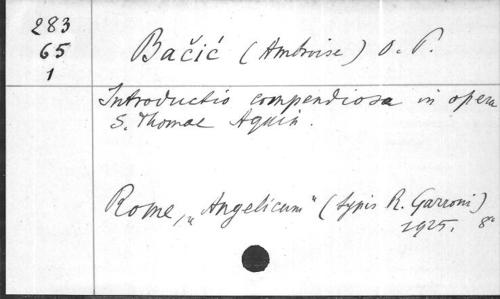 283
65
1
Bačić (Ambroise) O. P.
Introductio compendiosa in opera
S. Thomae Aquin.
Rome, "Angelicum" (typis R. Garroni)
1925. 8°